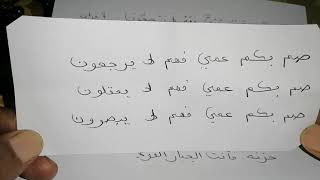 صم بكم عمي فهم لا يرجعون
صم بكم عمي فهم لا يعقلون
صم بكم عمي فهم لا يبصرون